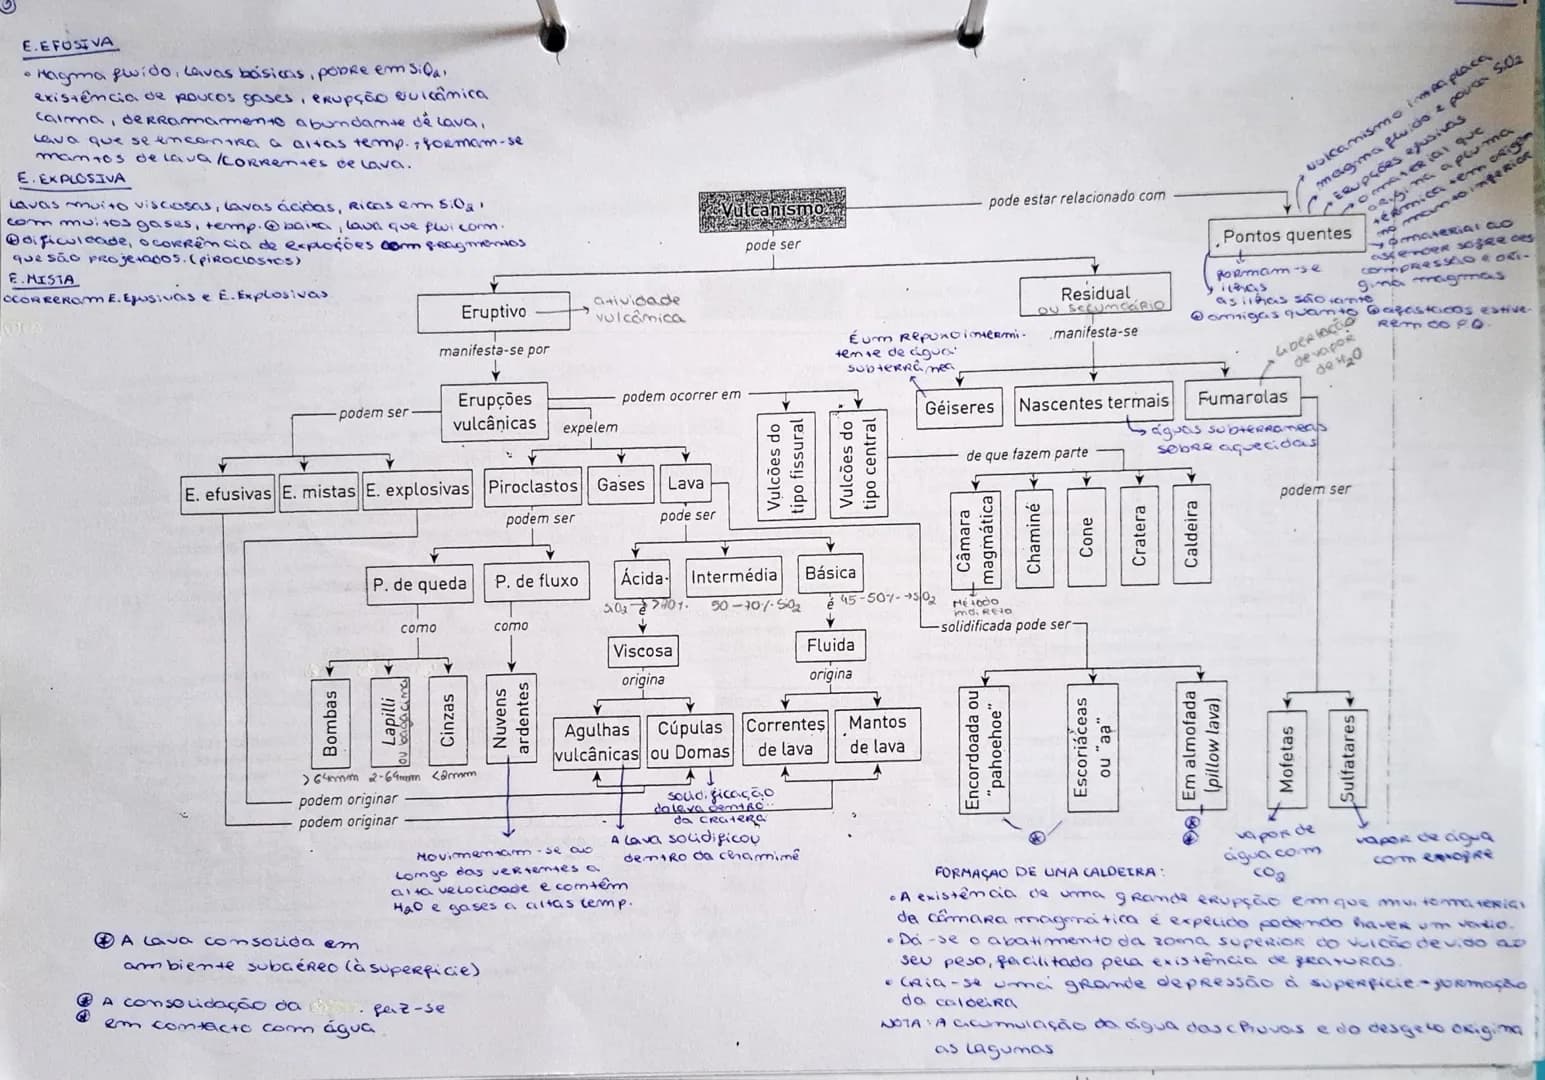 E.EFUSIVA
• Magma fluido, lavas básicas, pobre em SiO2,
existência de poucos gases, erupção vulcânica
calma, derramamento abundante de lava,
lava que se encontra a altas temp.; formam-se
mantos de lava/correntes de lava.
E. EXPLOSIVA
Lavas muito viscosas, lavas ácidas, ricas em SiO2,
com muitos gases, temp. + baixa, lava que flui com
+ dificuldade, ocorrência de explosões com fragmentos
que são projetados. (piroclastos)
E. MISTA
ocorreram E. Efusivas e E. Explosivas
Vulcanismo
pode estar relacionado com
Pontos quentes
vulcanismo intraplaca
magma fluido e pouca SiO2
Erupções efusivas
o material que
origina a pluma
térmica tem origem
no manto inferior
o material ao
ascender sofre des
compressão e ori-
gina magmas
formam-se
ilhas
as ilhas são tanto
+ antigas quanto + afastadas estive-
rem do P.Q.
pode ser
Eruptivo
atividade
vulcânica
Residual
ou secundário
manifesta-se por
manifesta-se
É um repuxo intermi-
tente de água
subterrânea
libertação
de vapor
de H2O
Erupções
vulcânicas
podem ser
podem ocorrer em
expelem
Géiseres
Nascentes termais
Fumarolas
águas subterrâneas
sobre aquecidas
Vulcões do
tipo fissural
Vulcões do
tipo central
de que fazem parte
podem ser
E. efusivas
E. mistas
E. explosivas
Piroclastos
Gases
Lava
podem ser
pode ser
Câmara
magmática
Chaminé
Cone
Cratera
Caldeira
Método
indireto
P. de queda
P. de fluxo
Ácida
Intermédia
Básica
SiO2 → >70%.
50-70% SiO2
45-50% → SiO2
é
é
como
como
Viscosa
Fluida
solidificada pode ser
origina
origina
Bombas
Lapilli
ou bagacina
Cinzas
Nuvens
ardentes
Agulhas
vulcânicas
Cúpulas
ou Domas
Correntes
de lava
Mantos
de lava
Encordoada ou
"pahoehoe"
Escoriáceas
ou "aa"
Em almofada
(pillow lava)
Mofetas
Sulfatares
>64mm
2-64mm
<2mm
podem originar
podem originar
solidificação
da lava dentro
da cratera
A lava solidificou
dentro da chaminé
Movimentam-se ao
longo das vertentes a
alta velocidade e contêm
H2O e gases a altas temp.
vapor de
água com
CO2
vapor de água
com enxofre
FORMAÇAO DE UMA CALDEIRA:
• A existência de uma grande erupção em que muito material
da câmara magmática é expelido podendo haver um vazio.
• Dá-se o abatimento da zona superior do vulcão devido ao
seu peso, facilitado pela existência de fraturas.
• Cria-se uma grande depressão à superfície → formação
da caldeira
NOTA: A acumulação da água das chuvas e do desgelo origina
as lagunas
* A lava consolida em
ambiente subaéreo (à superfície)
* A consolidação da . faz-se
* em contacto com água